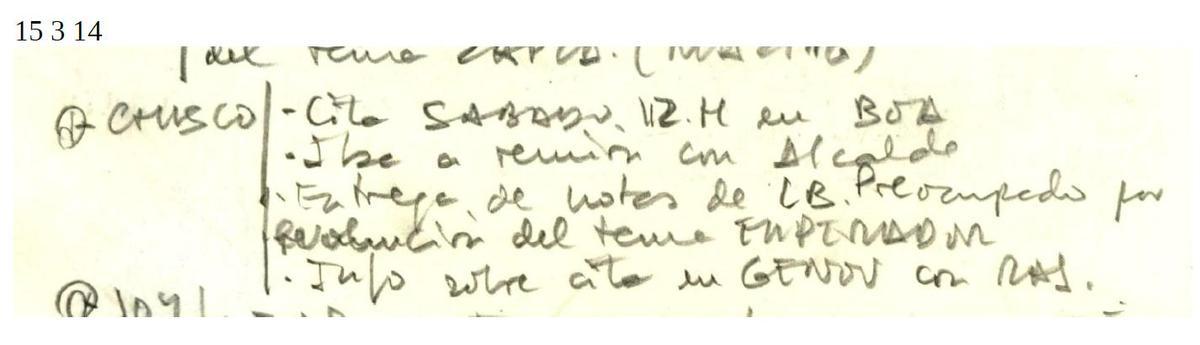 15 3 14
del tema
CHUSCO - Cita SABADO. 12.H en BOA
- Iba a reunión con Alcalde
. Entrega de notas de LB. Preocupado por
evolución del tema EMPERADOR
. Info sobre cita en GENOV con RAJ.